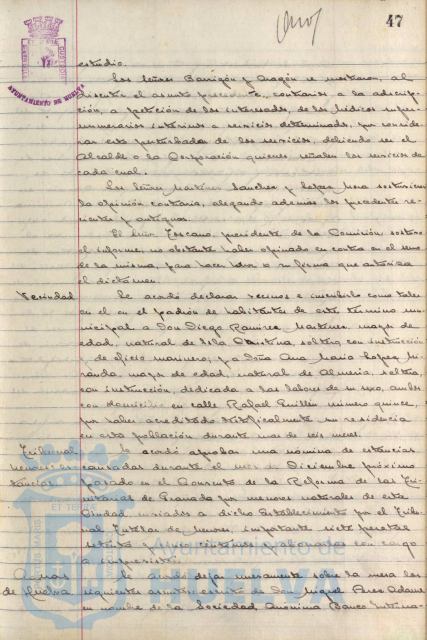 47
AYUNTAMIENTO DE HUELVA
estudio.
Los señores Barrigón y Aragón se mostraron, al
discutirse el asunto precedente, contrarios a la adscrip-
ción, a petición de los interesados, de los médicos super-
numerarios interinos a servicios determinados, por conside-
rar esto perturbador de los servicios, debiendo ser el
Alcalde o la Corporación quienes señalen los servicios de
cada cual.
Los señores Martínez Sánchez y López Mora sostuvieron
la opinión contraria, alegando además los precedentes re-
cientes y antiguos.
El Señor Toscano, presidente de la Comisión sostuvo
el informe, no obstante haber opinado en contra en el seno
de la misma, para hacer honor a su firma que autoriza
el dictámen.
Vecindad
Se acordó declarar vecinos e inscribirlo como tales
en el en el padrón de habitantes de este término mu-
nicipal a Don Diego Ramírez Martínez, mayor de
edad, natural de Isla Cristina, soltero, con instrucción
de oficio marinero, y a Doña Ana María López Mi-
randa, mayor de edad, natural de Almería, soltera,
con instrucción, dedicada a las labores de su sexo, ambos
con domicilio en calle Rafael Guillén número quince,
por haber acreditado su residencia
en esta población durante mas de seis meses.
Tribunal
menores es-
tancias
Se acordó aprobar una nómina de estancias
causadas durante el mes de Diciembre próximo
pasado en el Convento de la Reforma de las
de Granada por menores naturales de esta
Ciudad, enviados a dicho Establecimiento por el Tribu-
nal Tutelar de Menores, importante siete pesetas
setenta y cinco céntimos, abonadas con cargo
a imprevistos.
Aguas
de Huelva
Se acordó dejar nuevamente sobre la mesa los
siguientes asuntos: escrito de Don Miguel Báez Adame
en nombre de la Sociedad Anónima Banco Interna-
Ayuntamiento de
HUELVA